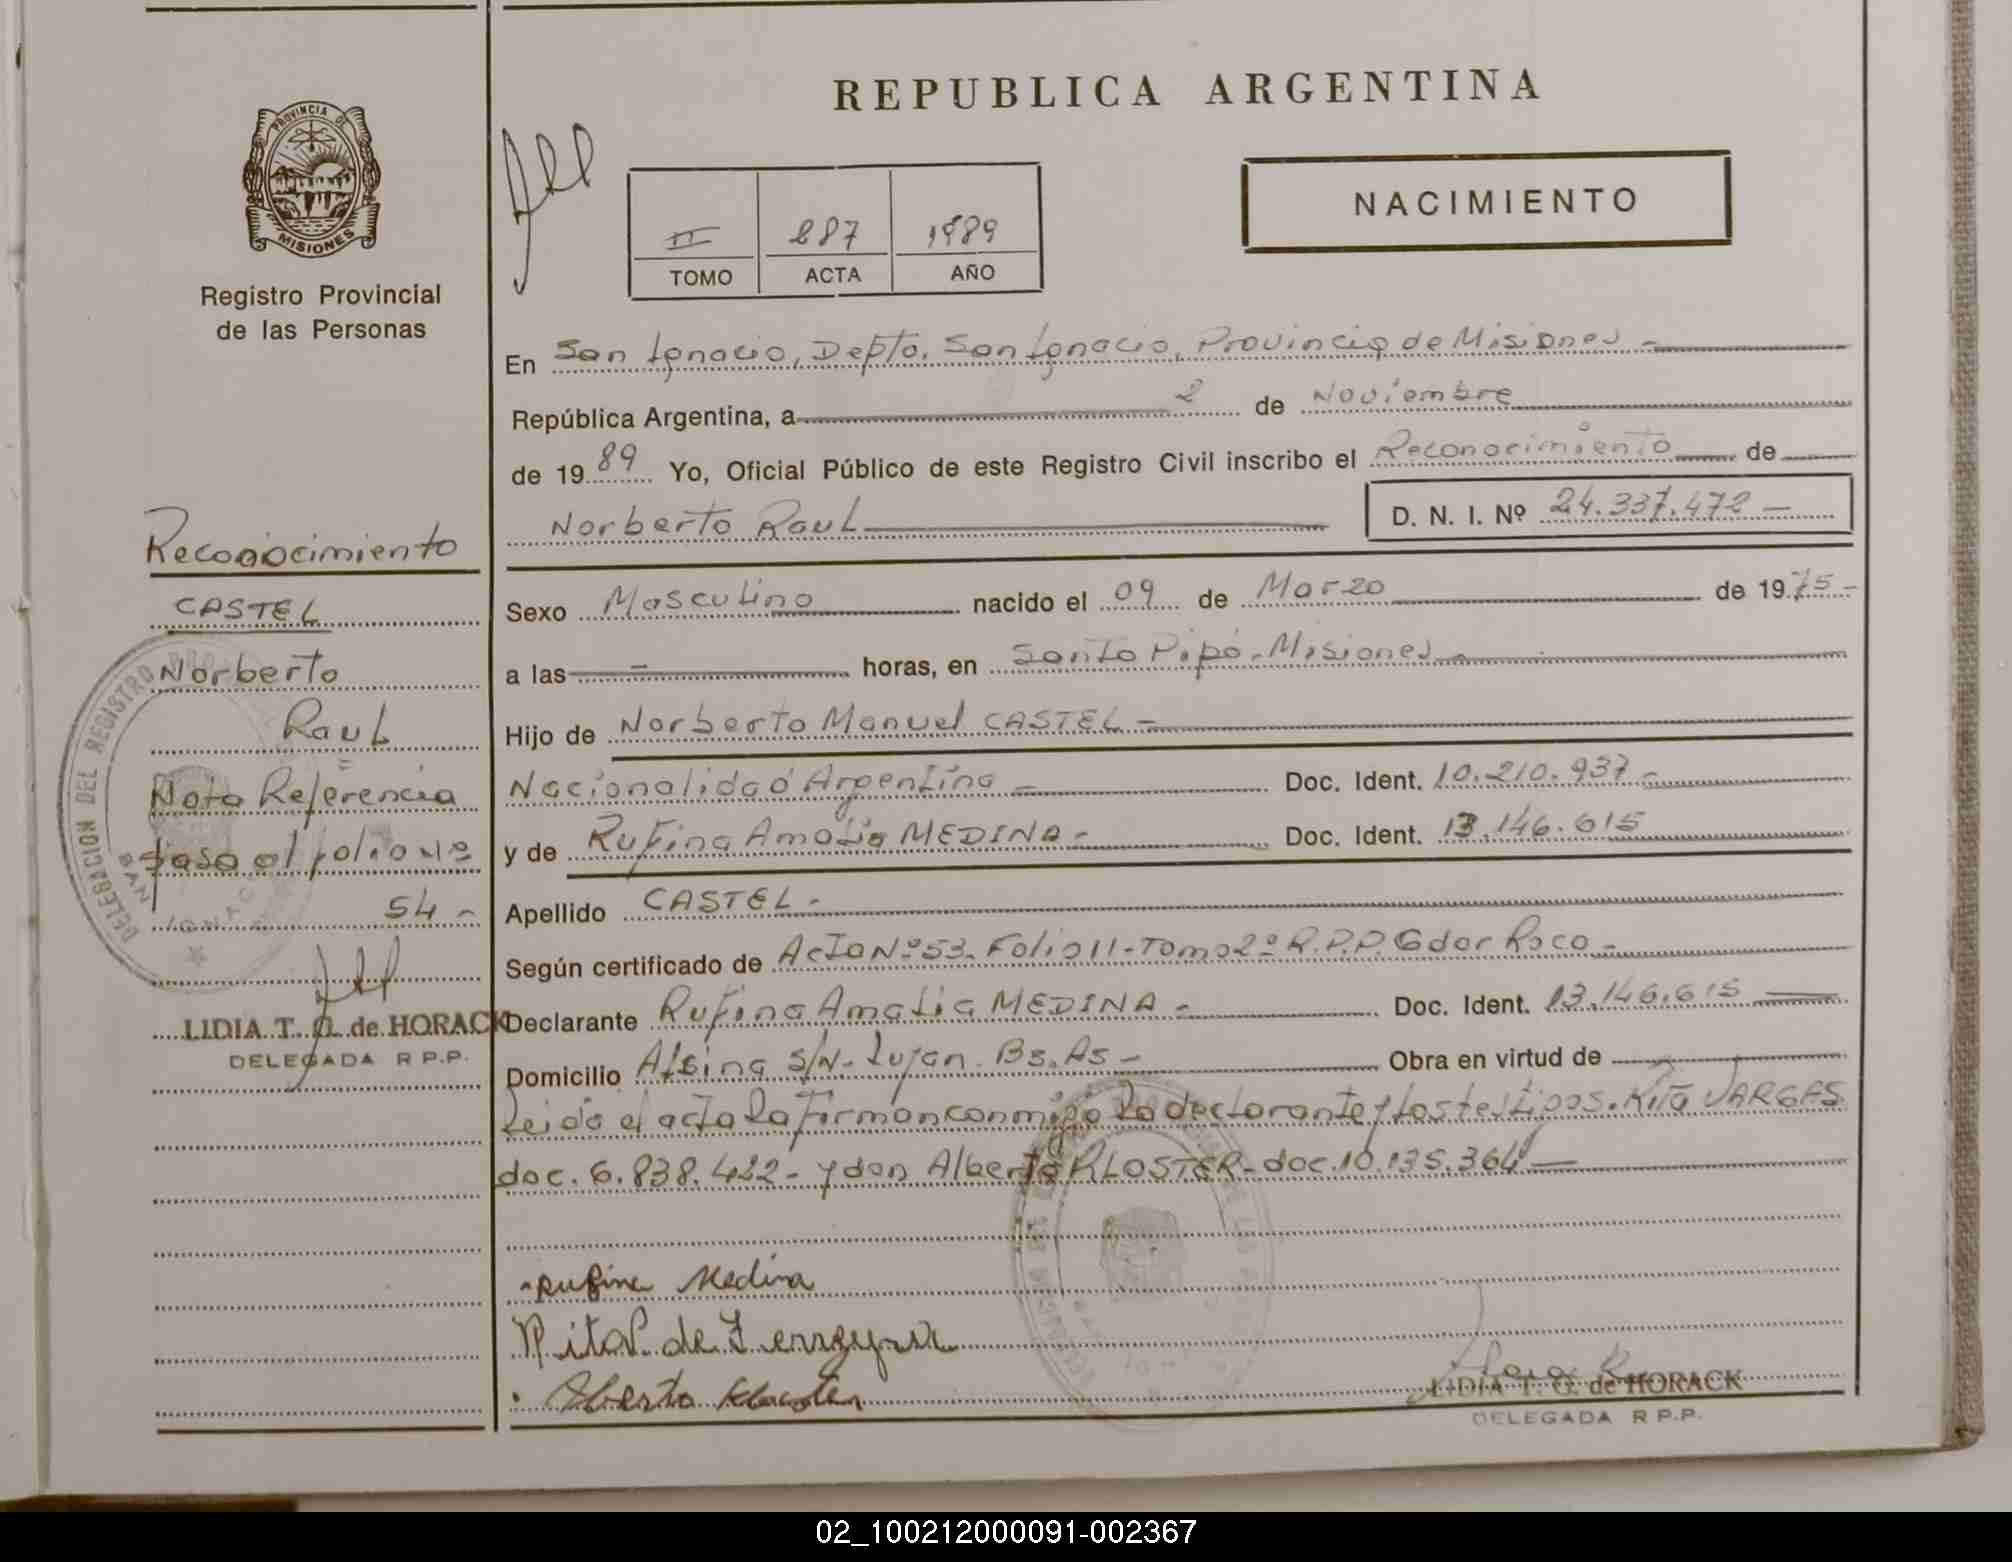 REPUBLICA ARGENTINA
PROVINCIA DE
MISIONES
Registro Provincial
de las Personas
II 887 1989
TOMO ACTA AÑO
NACIMIENTO
En San Ignacio, Depto. San Ignacio, Provincia de Misiones -
República Argentina, a 2 de Noviembre
de 1989 Yo, Oficial Público de este Registro Civil inscribo el Reconocimiento de
Norberto Raul D. N. I. Nº 24.337.472 -
Sexo Masculino nacido el 09 de Marzo de 1975 -
a las - horas, en Santo Pipó - Misiones -
Hijo de Norberto Manuel CASTEL -
Nacionalidad Argentina - Doc. Ident. 10.210.937 -
y de Rufina Amalia MEDINA - Doc. Ident. 13.146.615
Apellido CASTEL -
Según certificado de Acta Nº 53 - Folio 11 - Tomo 2º R.P.P. Gdor Roca -
Declarante Rufina Amalia MEDINA - Doc. Ident. 13.146.615
Domicilio Alsina S/N - Lujan - Bs. As - Obra en virtud de
Leida el acta la firman conmigo la declarante y los testigos. Rita VARGAS
doc. 6.838.422 - y don Alberto KLOSTER - doc. 10.135.364 -
Rufina Medina
Rita V. de
Alberto Kloster
LIDIA T. O. de HORACK
DELEGADA R P.P.
Reconocimiento
CASTEL
Norberto
Raul
Nota Referencia
paso al folio Nº
54 -
LIDIA T. O. de HORACK
DELEGADA R P.P.
DELEGACION DEL REGISTRO
SAN IGNACIO
02_100212000091-002367